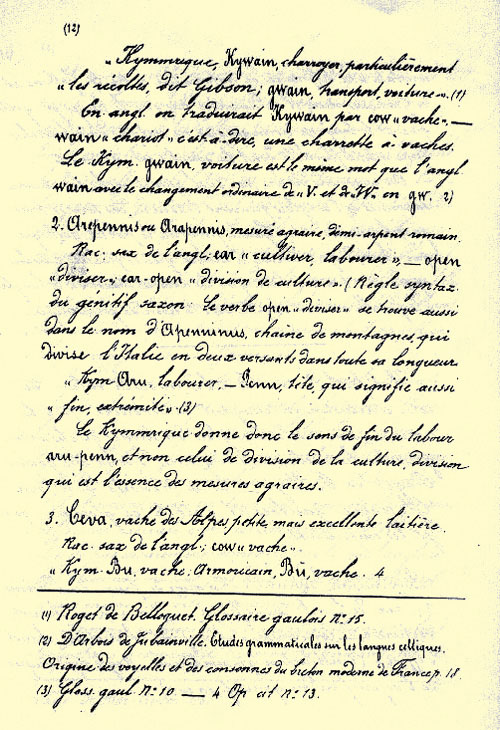 (12)
"Kymmrique, Kywain, charroyer, particulièrement
"les récoltes, dit Gibson; gwain, transport, voiture". (1)
En angl. on traduirait Kywain par cow "vache", —
wain "chariot" c'est-à-dire, une charrette à vaches.
Le Kym. gwain, voiture est le même mot que l'angl.
wain avec le changement ordinaire de "V. et de W" en gw. 2)
2. Arepennis ou Arapennis, mesure agraire, demi-arpent romain.
Rac. sax de l'angl; ear "cultiver, labourer", — open
"diviser"; ear-open "division de culture". (Règle syntax.
du génitif saxon. Le verbe open "diviser" se trouve aussi
dans le nom d'Apenninus, chaîne de montagnes, qui
divise l'Italie en deux versants dans toute sa longueur.
"Kym Aru, labourer, — Penn, tête, qui signifie aussi
"fin, extrémité" (3)
Le Kymmrique donne donc le sens de fin du labour
aru-penn, et non celui de division de la culture, division
qui est l'essence des mesures agraires.
3. Ceva, vache des Alpes, petite, mais excellente laitière.
Rac. sax de l'angl; cow "vache".
"Kym. Bu, vache. Armoricain, Bû, vache. 4
(1) Roget de Belloguet. Glossaire gaulois n° 15.
(2) D'Arbois de Jubainville. Etudes grammaticales sur les langues celtiques.
Origine des voyelles et des consonnes du breton moderne de France p. 18.
(3) Gloss. gaul. n° 10 — 4 Op cit n° 13.